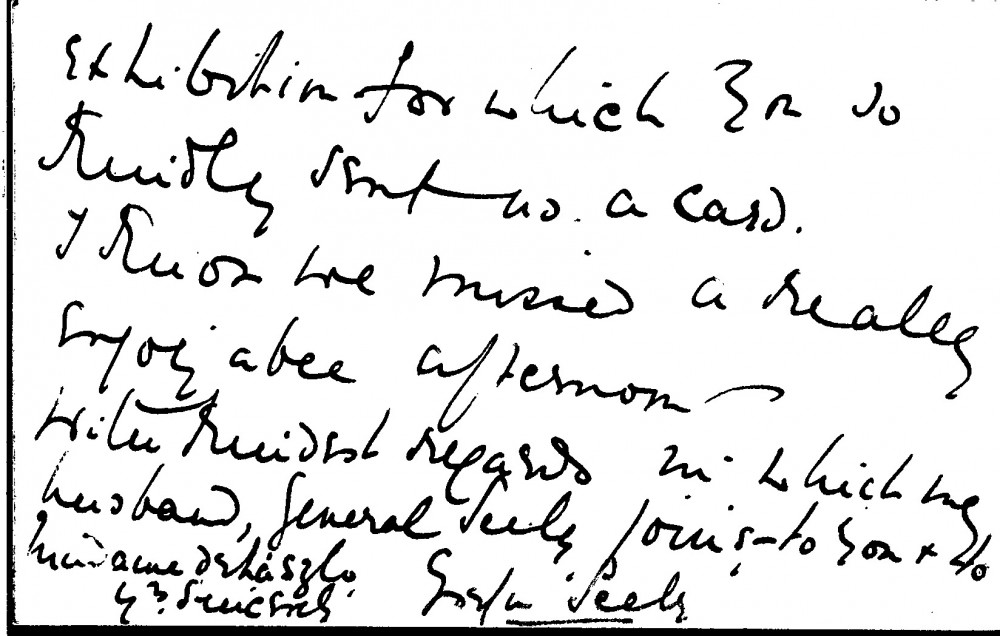 exhibition for which you so
kindly sent us a card.
I know we missed a really
enjoyable afternoon
with kindest regards in which my
husband, General Seely, joins - to you & to
Madame de László
Yrs. Sincerely Evelyn Seely